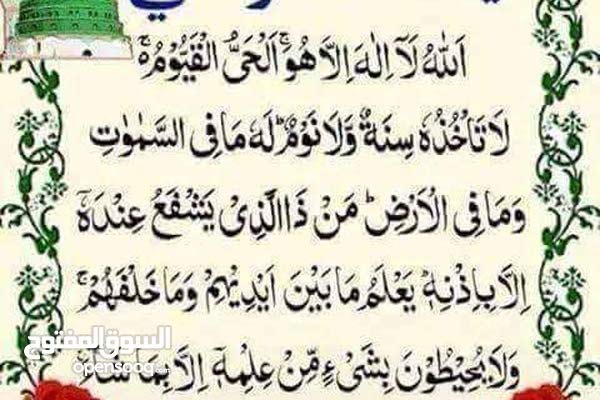 اَللهُ لَآ اِلٰهَ اِلَّا هُوَۚ اَلْحَىُّ الْقَيُّوْمُ ۚ
لَا تَاْخُذُهٗ سِنَةٌ وَّلَا نَوْمٌ ؕ لَهٗ مَا فِى السَّمٰوٰتِ
وَمَا فِى الْاَرْضِ ؕ مَنْ ذَا الَّذِىْ يَشْفَعُ عِنْدَهٗٓ
اِلَّا بِاِذْنِهٖ ؕ يَعْلَمُ مَا بَيْنَ اَيْدِيْهِمْ وَمَا خَلْفَهُمْ ۚ
وَلَا يُحِيْطُوْنَ بِشَىْءٍ مِّنْ عِلْمِهٖٓ اِلَّا بِمَا شَآءَ
السوق المفتوح
opensooq.com